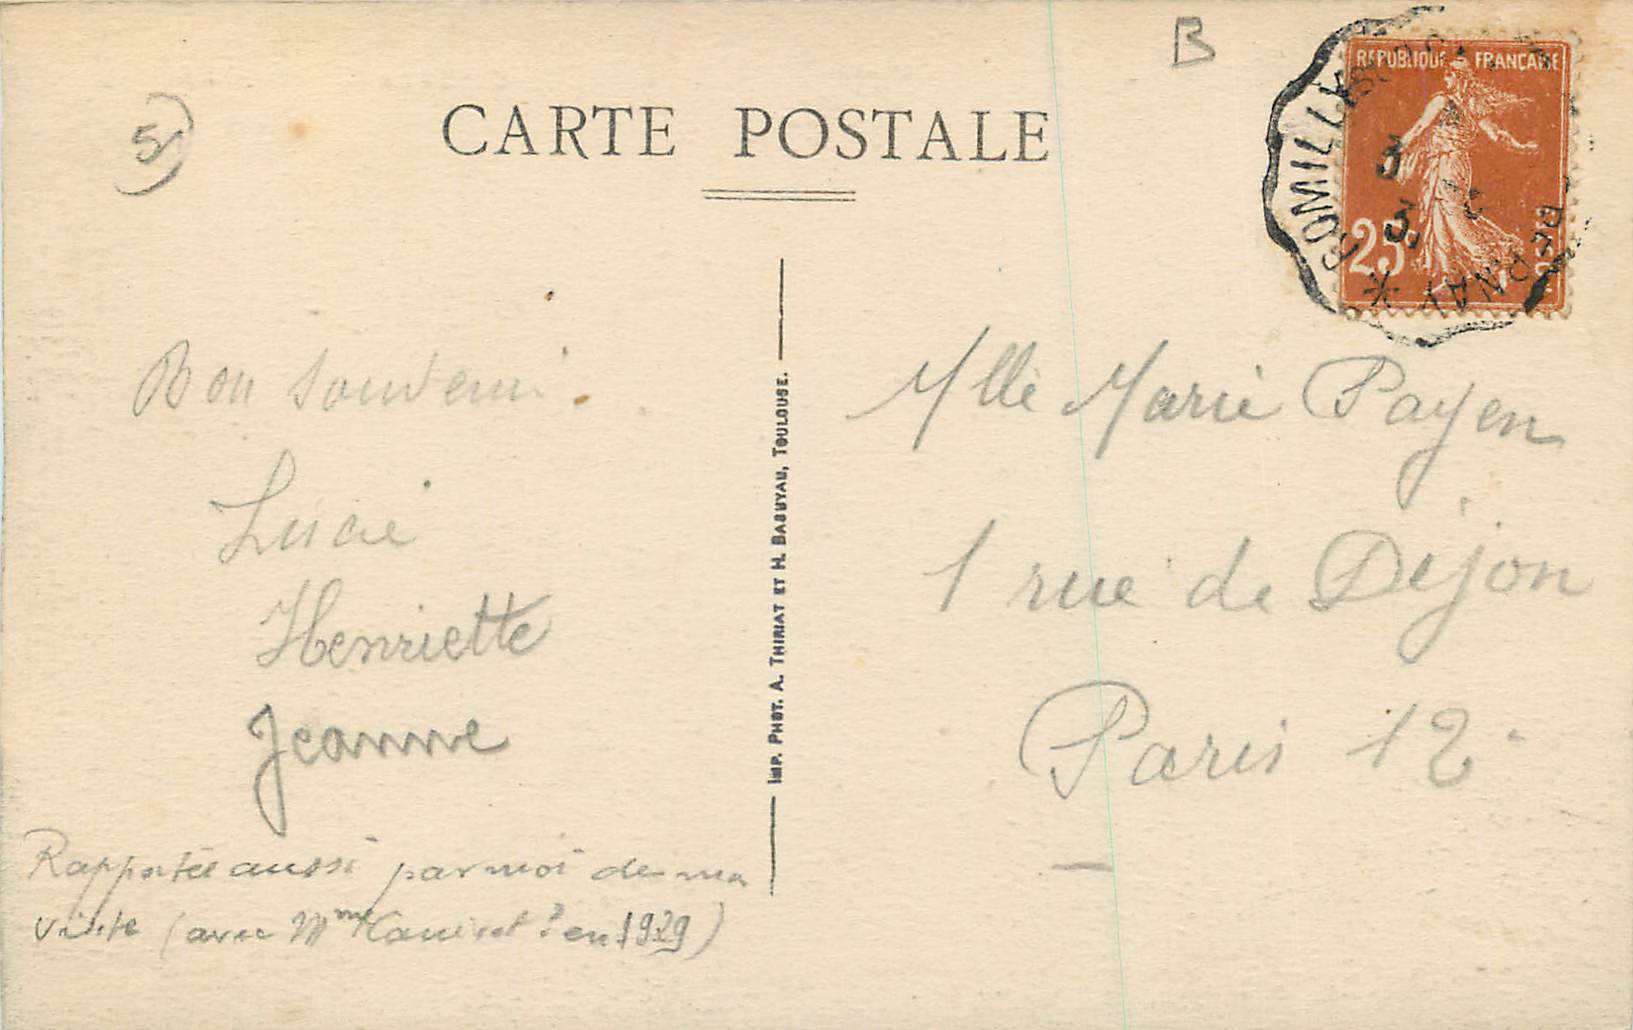 B
5
CARTE POSTALE
RÉPUBLIQUE FRANÇAISE
25c
POSTES
ROMILLY
EPERNAY
Bon souvenir.
Lucie
Henriette
Jeanne
Rapportée aussi par moi de ma
visite (avec Mme ? en 1929)
IMP. PHOT. A. THIRIAT ET H. BASUYAU, TOULOUSE.
Mlle Marie Payen
1 rue de Dijon
Paris 12